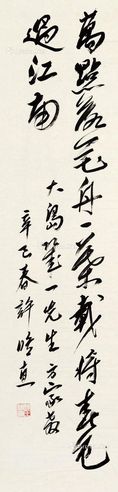 萬點落花舟一葉載將春色
過江南
大島 一先生方家教
辛巳春許晴